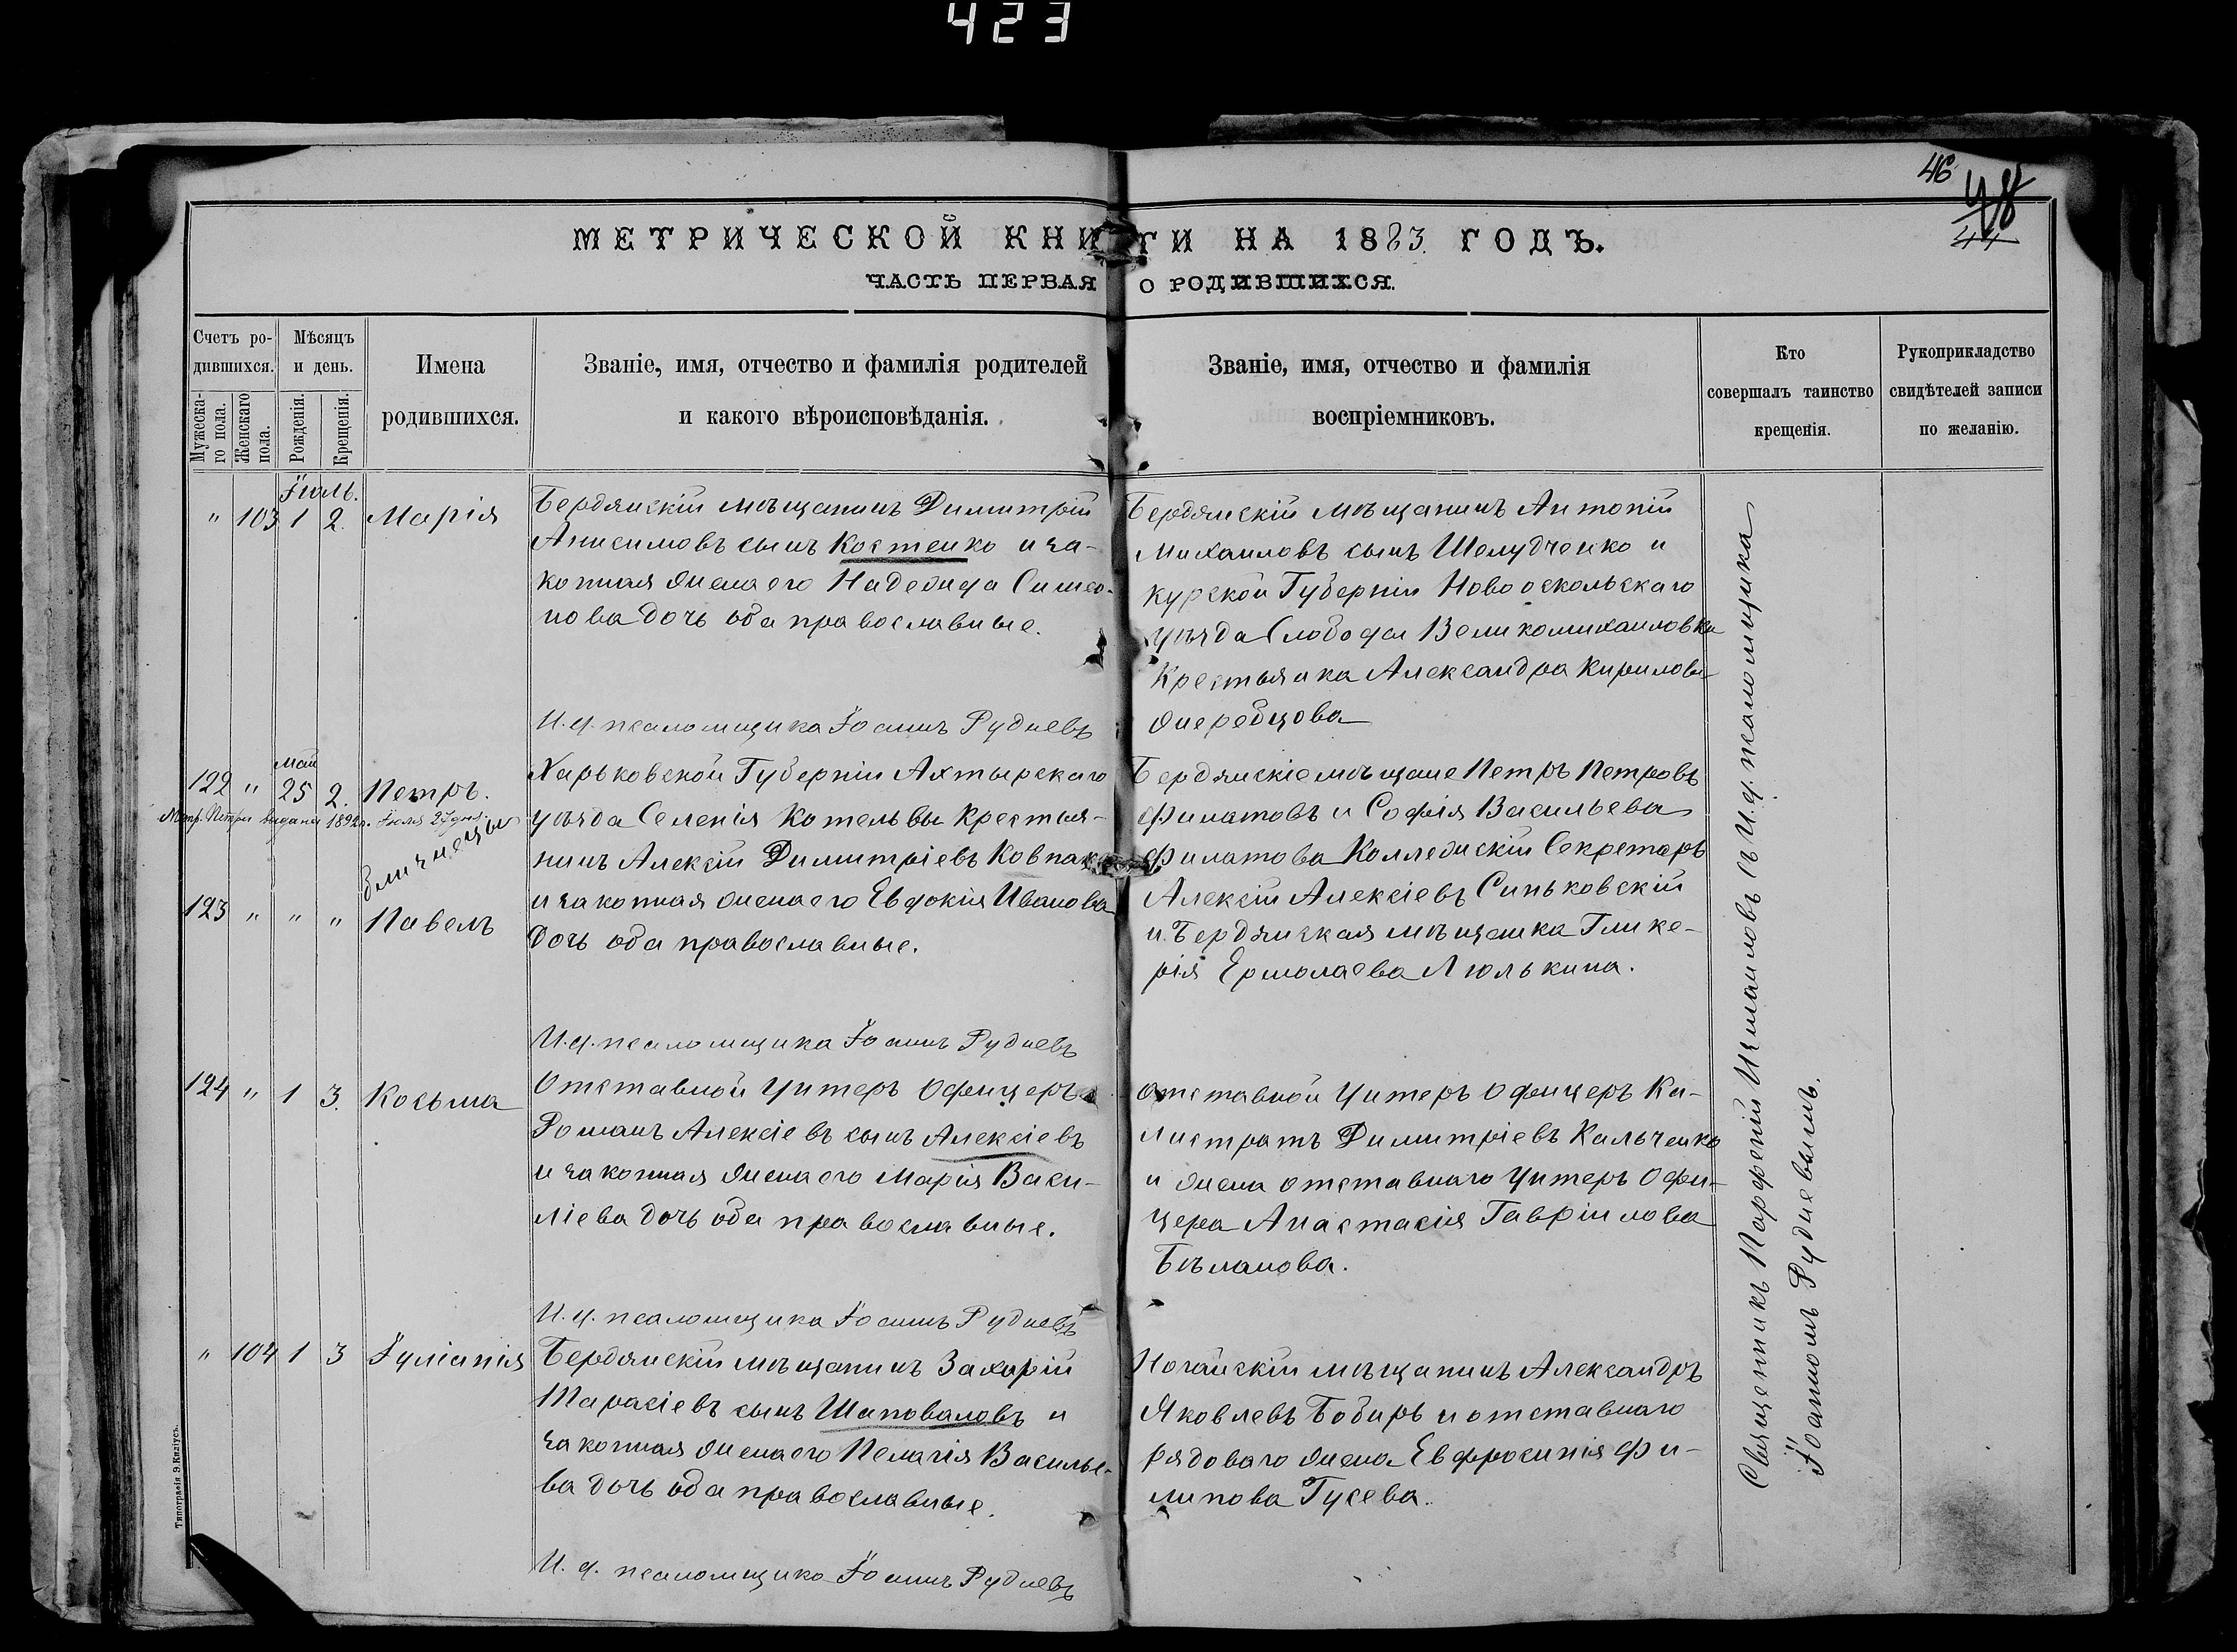 423
46
48
44
МЕТРИЧЕСКОЙ КНИГИ НА 1883 ГОДЪ.
ЧАСТЬ ПЕРВАЯ О РОДИВШИХСЯ.
Счетъ ро-
дившихся.
Мужеска-
го пола.
Женскаго
пола.
Мѣсяцъ
и день.
Рожденія.
Крещенія.
Имена
родившихся.
Званіе, имя, отчество и фамилія родителей
и какого вѣроисповѣданія.
Званіе, имя, отчество и фамилія
воспріемниковъ.
Кто
совершалъ таинство
крещенія.
Рукоприкладство
свидѣтелей записи
по желанію.
Іюль.
" 103 1 2. Марія
Бердянскій мѣщанинъ Димитрій
Анисимовъ сынъ Костенко и за-
конная жена его Надежда Симео-
нова дочь оба православные.
И. д. псаломщика Іоаннъ Рудневъ
Бердянскій мѣщанинъ Антоній
Михаиловъ сынъ Шелудченко и
Курской Губерніи Новооскольскаго
уѣзда Слободы Великомихаиловки
Крестьянка Александра Кирилова
Жеребцова
Май
122 " 25 2. Петръ.
Метр. Петра выдана 1892 г. Іюля 27 дня.
близнецы
123 " " " Павелъ
Харьковской Губерніи Ахтырскаго
уѣзда Селенія Котельвы Крестья-
нинъ Алексій Димитріевъ Ковпак
и законная жена его Евдокія Иванова
дочь оба православные.
И. д. псаломщика Іоаннъ Рудневъ
Бердянскіе мѣщане Петръ Петровъ
Филатовъ и Софія Васильева
Филатова Коллежскій Секретарь
Алексій Алексіевъ Синьковскій
и Бердянская мѣщанка Глике-
рія Ермолаева Люлькина.
124 " 1 3. Косьма
Отставной Унтеръ Офицеръ
Романъ Алексіевъ сынъ Алексіевъ
и законная жена его Марія Васи-
ліева дочь оба православные.
И. д. псаломщика Іоаннъ Рудневъ
Отставной Унтеръ Офицеръ Ка-
листратъ Димитріевъ Кальченко
и жена отставнаго Унтеръ Офи-
цера Анастасія Гавріилова
Бѣланова.
" 104 1 3 Іуліанія
Бердянскій мѣщанинъ Захарій
Тарасіевъ сынъ Шаповаловъ и
законная жена его Пелагія Василье-
ва дочь оба православные.
И. д. псаломщика Іоаннъ Рудневъ
Ногайскій мѣщанинъ Александръ
Яковлевъ Бобырь и отставнаго
рядоваго жена Евфросинія Фи-
липова Гусева.
Священникъ Парфеній Измаиловъ съ И. д. псаломщика
Іоанномъ Рудневымъ.
Типографія Э. Килиусъ.